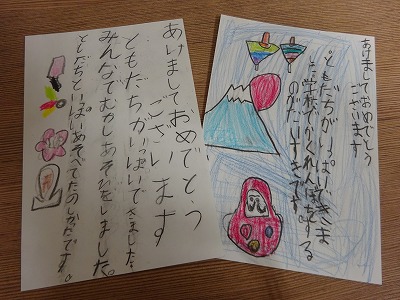 あけましておめでとう
ございます
ともだちがいっぱいできました。
みんなでむかしあそびをしました。
ともだちといっぱいあそべてたのしかったです。
あけましておめでとう
ございます
ともだちがいっぱいできま
した学校でかくれんぼをする
のがだいすきです。